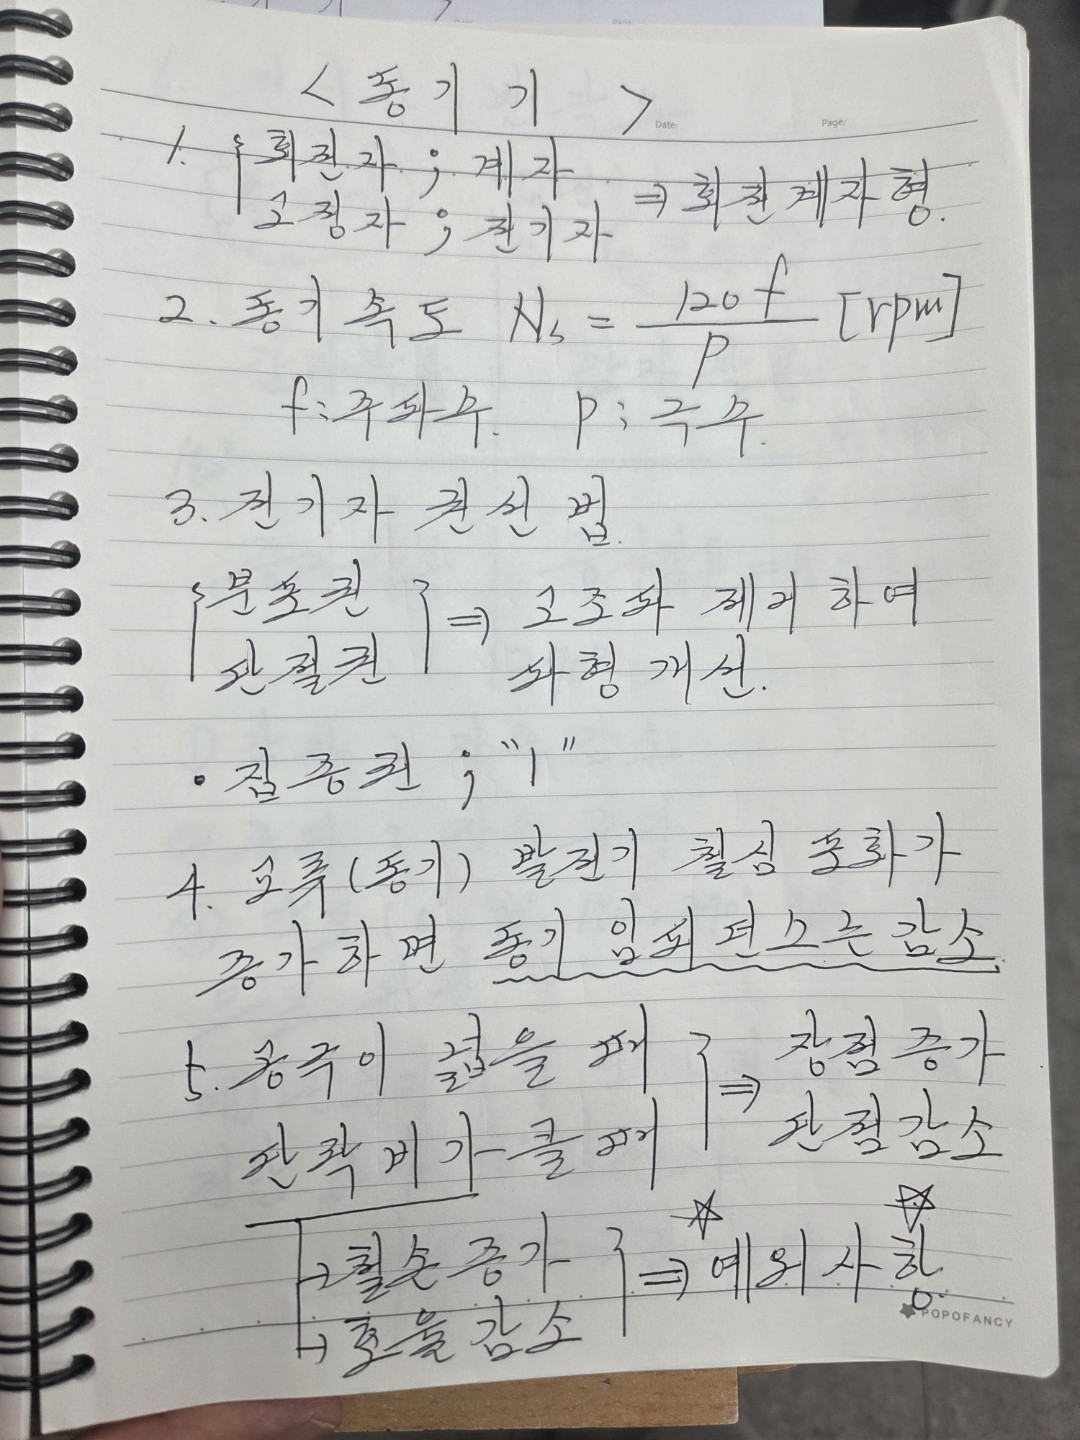 < 동기기 >
Date/ Page/
1. { 회전자 ; 계자
고정자 ; 전기자 ⇒ 회전계자형.
2. 동기속도 Ns = 120f / p [rpm]
f ; 주파수. p ; 극수.
3. 전기자 권선법.
{ 분포권
단절권 } ⇒ 고조파 제거하여
파형개선.
• 집중권 ; "1"
4. 교류(동기) 발전기 철심 포화가
증가하면 동기 임피던스는 감소.
5. 공극이 넓을 때
단락비가 클 때 } ⇒ 장점 증가
단점 감소
→ 철손 증가
→ 효율 감소 } ⇒ ☆예외사항☆.
POPOFANCY